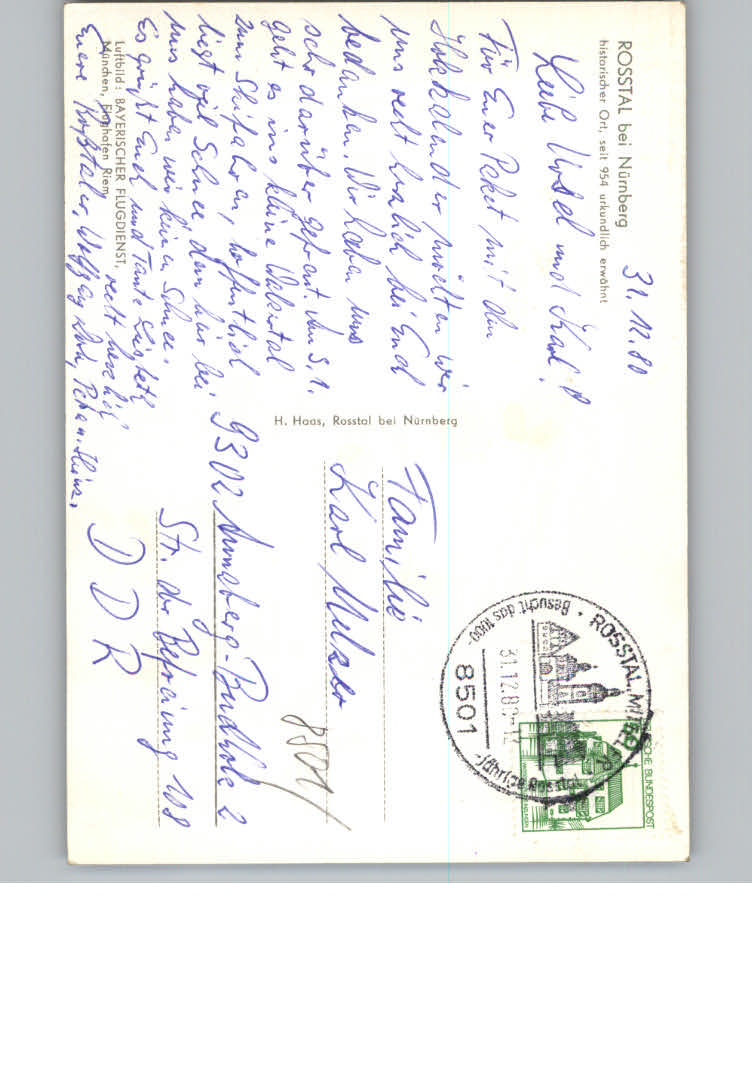 ROSSTAL bei Nürnberg
historischer Ort, seit 954 urkundlich erwähnt
31. 12. 80
Liebe Ursel und Karl!
Für Euer Paket mit dem
Holzkalender möchten wir
uns recht herzlich bei Euch
bedanken. Wir haben uns
sehr darüber gefreut. Am 3.1.
geht es ins kleine Walsertal
zum Skifahren, hoffentlich
liegt viel Schnee denn hier bei
uns haben wir keinen Schnee.
Es grüßt Euch und Tante Lisbeth
recht herzlich
Euere Roßtaler, Wolfgang, Peter u. Heinz.
Luftbild: BAYERISCHER FLUGDIENST,
München, Flughafen Riem
H. Haas, Rosstal bei Nürnberg
ROSSTAL, MITTELFR
Besucht das 1000-
-jährige Rosstal
31.12.80-12
8501
DEUTSCHE BUNDESPOST
Familie
Karl Melzer
8501
9302 Annaberg-Buchholz 2
Str. der Befreiung 108
D D R